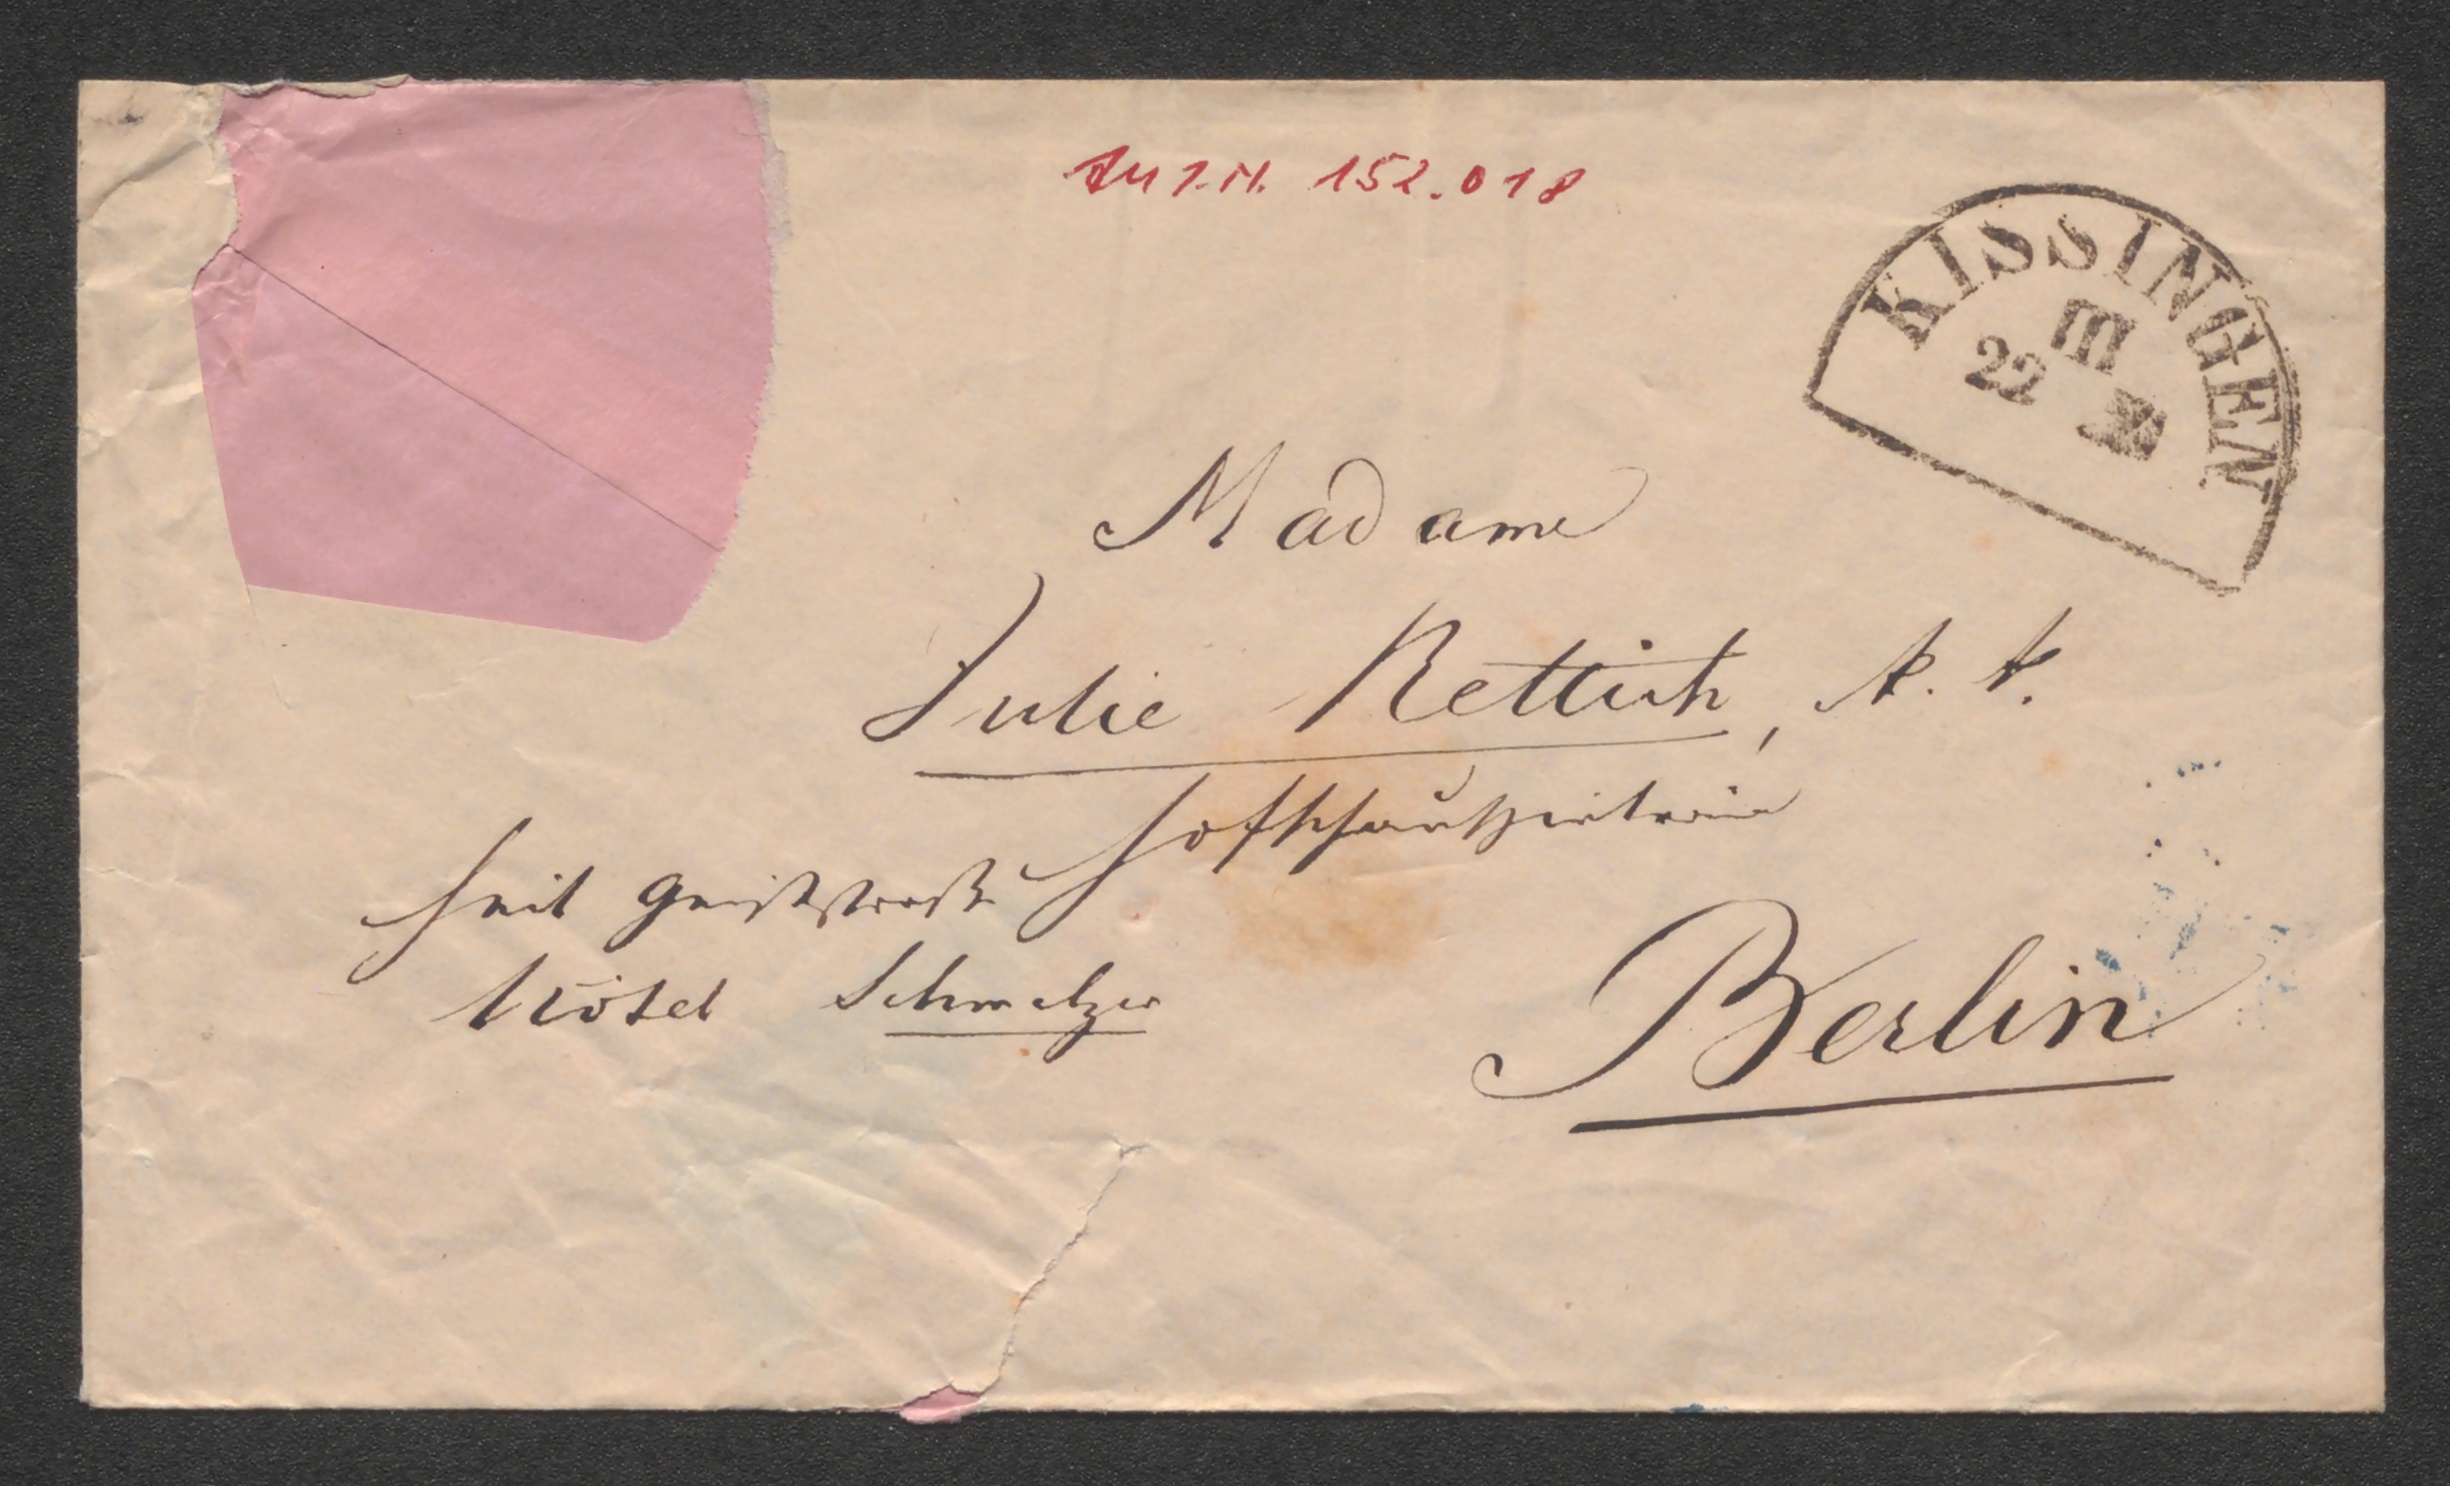 Zu I.N. 152.018
KISSINGEN
22 III
Madame
Julie Rettich, k. k.
Hofschauspielerin
Heil Geiststraße
Hôtel Schmelzer
Berlin